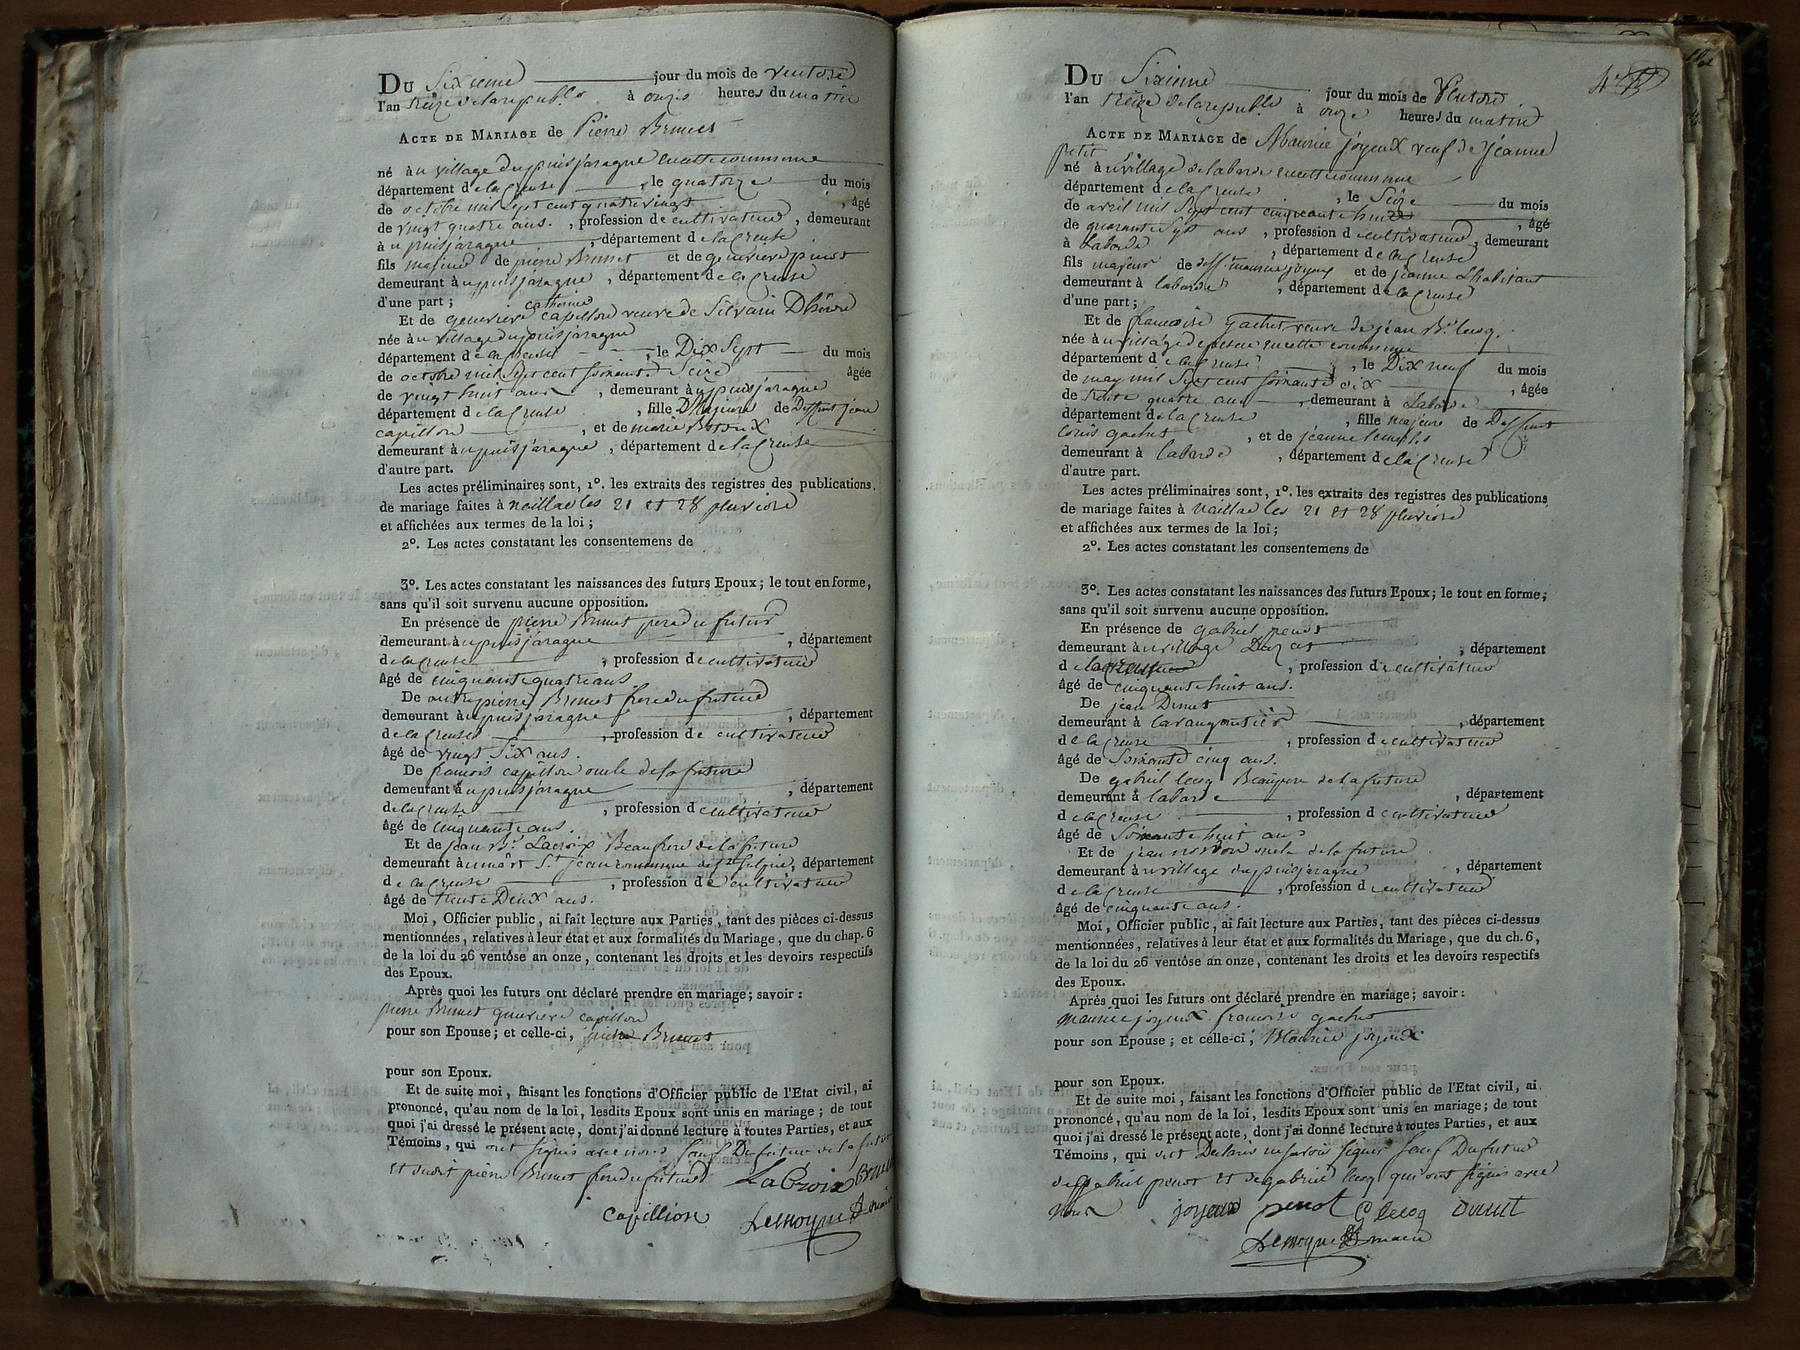 Du Sixieme jour du mois de ventose
l'an treize de la republ. à onze heures du matin
Acte de Mariage de Pierre Brunet
né au village du puisjaragne en cette commune
département de la Creuse, le quatorze du mois
de octobre mil sept cent quatre vingt, âgé
de vingt quatre ans., profession de cultivateur, demeurant
à upuisjaragne, département de la Creuse
fils majeur de pierre Brunet et de genevieve pinot
demeurant à upuisjaragne, département de la Creuse
d'une part;
catherine
Et de genevieve capillon veuve de Silvain
née au village du puisjaragne
département de la Creuse, le Dix Sept du mois
de octobre mil Sept cent soixante Seize âgée
de vingt huit ans, demeurant à upuisjaragne
département de la Creuse, fille Majeure de Deffunt jean
capillon, et de marie
demeurant à upuisjaragne, département de la Creuse
d'autre part.
Les actes préliminaires sont, 1º. les extraits des registres des publications
de mariage faites à naillac les 21 et 28 pluviose
et affichées aux termes de la loi;
2º. Les actes constatant les consentemens de
3º. Les actes constatant les naissances des futurs Epoux; le tout en forme,
sans qu'il soit survenu aucune opposition.
En présence de pierre Brunet pere du futur
demeurant à upuisjaragne, département
de la Creuse, profession de cultivateur
âgé de cinquante quatre ans
De autre pierre Brunet frere du futur
demeurant à upuisjaragne, département
de la Creuse, profession de cultivateur
âgé de vingt Six ans.
De francois capillon oncle de la future
demeurant à upuisjaragne, département
de la Creuse, profession de cultivateur
âgé de cinquante ans.
Et de jean Bte. Lacroix Beaufrere de la future
demeurant à St jean commune de, département
de la Creuse, profession de cultivateur
âgé de trente Deux ans.
Moi, Officier public, ai fait lecture aux Parties, tant des pièces ci-dessus
mentionnées, relatives à leur état et aux formalités du Mariage, que du chap. 6
de la loi du 26 ventôse an onze, contenant les droits et les devoirs respectifs
des Epoux.
Après quoi les futurs ont déclaré prendre en mariage; savoir:
pierre Brunet genevieve capillon
pour son Epouse; et celle-ci, pierre Brunet
pour son Epoux.
Et de suite moi, faisant les fonctions d'Officier public de l'Etat civil, ai
prononcé, qu'au nom de la loi, lesdits Epoux sont unis en mariage; de tout
quoi j'ai dressé le présent acte, dont j'ai donné lecture à toutes Parties, et aux
Témoins, qui ont signés avec nous sauf Du futur de la future
et dudit pierre Brunet frere du futur LaCroix
Capillion Lemoyne
Du Sixieme jour du mois de Ventose
l'an treize de la republ. à onze heures du matin
Acte de Mariage de Maurice joyeux veuf de jeanne
petit
né au village de laborde en cette commune
département de la Creuse, le Seize du mois
de avril mil Sept cent cinquante huit, âgé
de quarante sept ans, profession de cultivateur, demeurant
à Laborde, département de la Creuse
fils majeur de deff. maurice joyeux et de jeanne Lhabitant
demeurant à laborde, département de la Creuse
d'une part;
Et de francoise gachet veuve de jean Bte. lecoq.
née au village de en cette commune
département de la Creuse, le Dix neuf du mois
de may mil Sept cent soixante dix, âgée
de trente quatre ans, demeurant à Laborde
département de la Creuse, fille majeure de Deffunt
louis gachet, et de jeanne
demeurant à laborde, département de la Creuse
d'autre part.
Les actes préliminaires sont, 1º. les extraits des registres des publications
de mariage faites à Naillac les 21 et 28 pluviose
et affichées aux termes de la loi;
2º. Les actes constatant les consentemens de
3º. Les actes constatant les naissances des futurs Epoux; le tout en forme;
sans qu'il soit survenu aucune opposition.
En présence de gabriel penot
demeurant à u village, département
de la Creuse, profession de cultivateur
âgé de cinquante huit ans.
De jean
demeurant à, département
de la Creuse, profession de cultivateur
âgé de Soixante cinq ans.
De gabriel lecoq Beaupere de la future
demeurant à laborde, département
de la Creuse, profession de cultivateur
âgé de Soixante huit ans
Et de jean oncle de la future
demeurant à u village du puisjaragne, département
de la Creuse, profession de cultivateur
âgé de cinquante ans.
Moi, Officier public, ai fait lecture aux Parties, tant des pièces ci-dessus
mentionnées, relatives à leur état et aux formalités du Mariage, que du ch. 6,
de la loi du 26 ventôse an onze, contenant les droits et les devoirs respectifs
des Epoux.
Aprés quoi les futurs ont déclaré prendre en mariage; savoir:
maurice joyeux francoise gachet
pour son Epouse; et celle-ci; Maurice joyeux
pour son Epoux.
Et de suite moi, faisant les fonctions d'Officier public de l'Etat civil, ai
prononcé, qu'au nom de la loi, lesdits Epoux sont unis en mariage; de tout
quoi j'ai dressé le présent acte, dont j'ai donné lecture à toutes Parties, et aux
Témoins, qui ont Declarer ne savoir signer sauf Du futur
de gabriel penot et de gabriel lecoq qui ont signés avec
nous joyeux penot G lecoq
Lemoyne